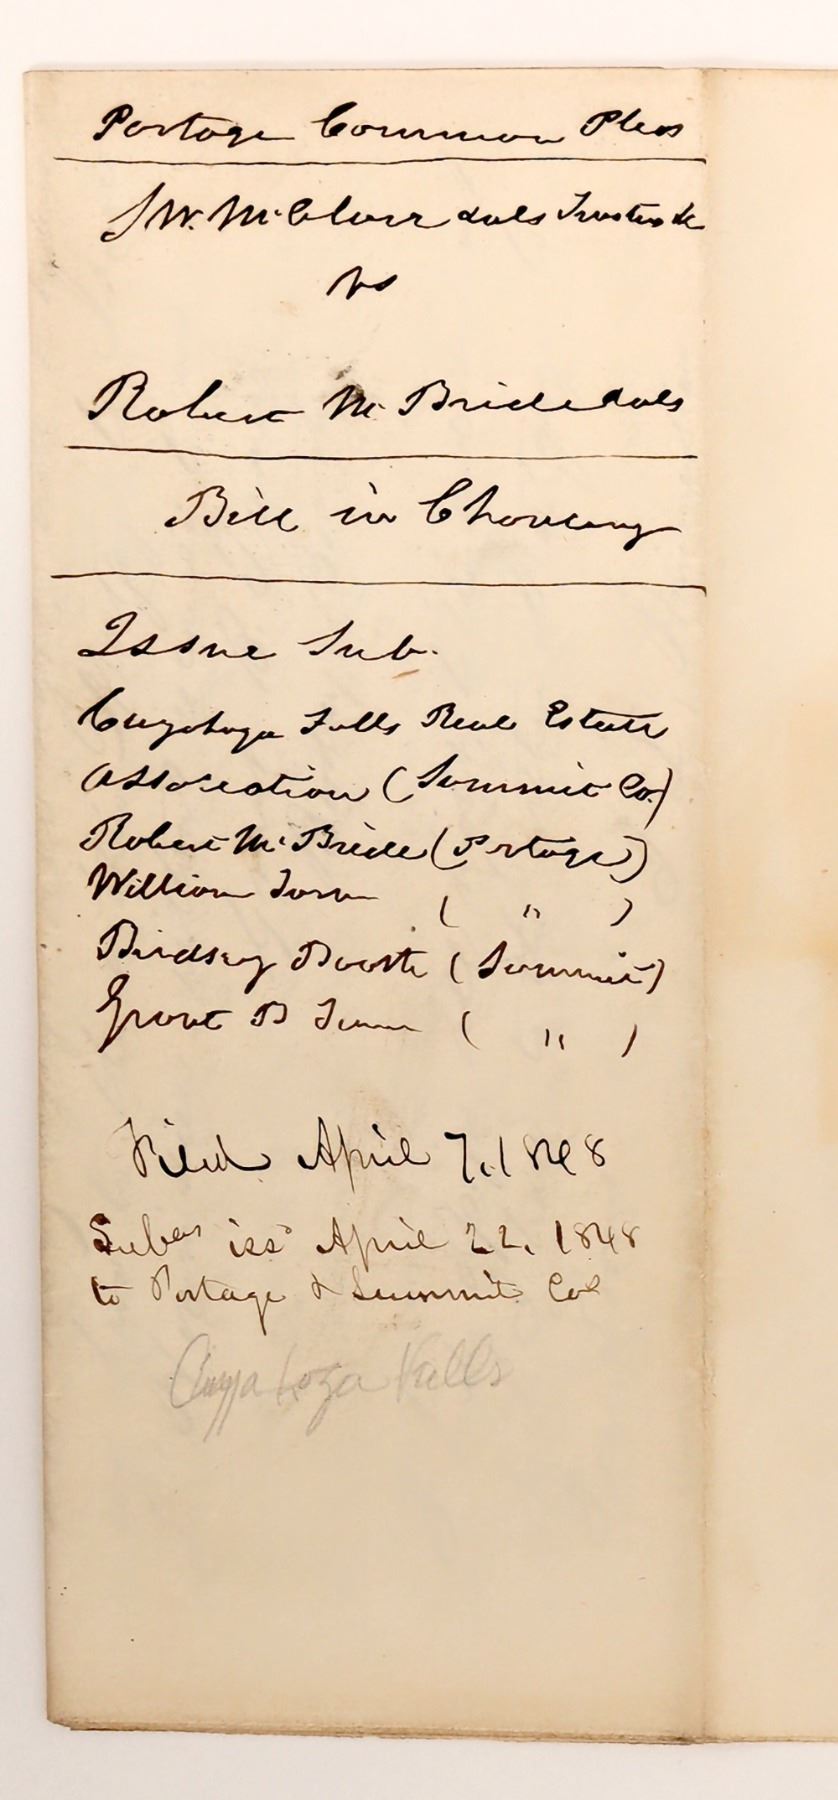 Portage Common Pleas
S W. McClure & als Trustees &c
vs
Robert Mc Bride & als
Bill in Chancery
Issue Sub.
Cuyahoga Falls Real Estate
Association (Summit Co.)
Robert McBride (Portage)
William ( " )
Birdsey Booth (Summit)
Grant B ( " )
Filed April 7, 1848
Subas iss^d April 22, 1848
to Portage & Summit Cos
Cuyahoga Falls